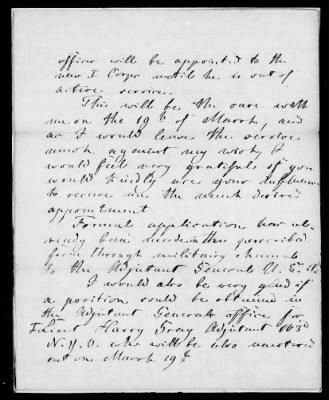 officer will be appointed to the
new I Corps until he is out of
active service.
This will be the case with
me on the 19th of March, and
as I would leave the service
much against my wish, I
would feel very grateful if you
would kindly use your influence
to secure me the much desired
appointment.
Formal application has al-
ready been made in the prescribed
form through military channels
to the Adjutant General U.S.A.
I would also be very glad if
a position could be obtained in
the Adjutant Generals office for
Lieut Harry Gray Adjutant 163d
N.Y.V. who will be also mustered
out on March 19th